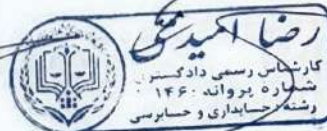 رضا امیدنگی
کارشناس رسمی دادگستری
شماره پروانه ۱۴۶۰
رشته: حسابداری و حسابرسی